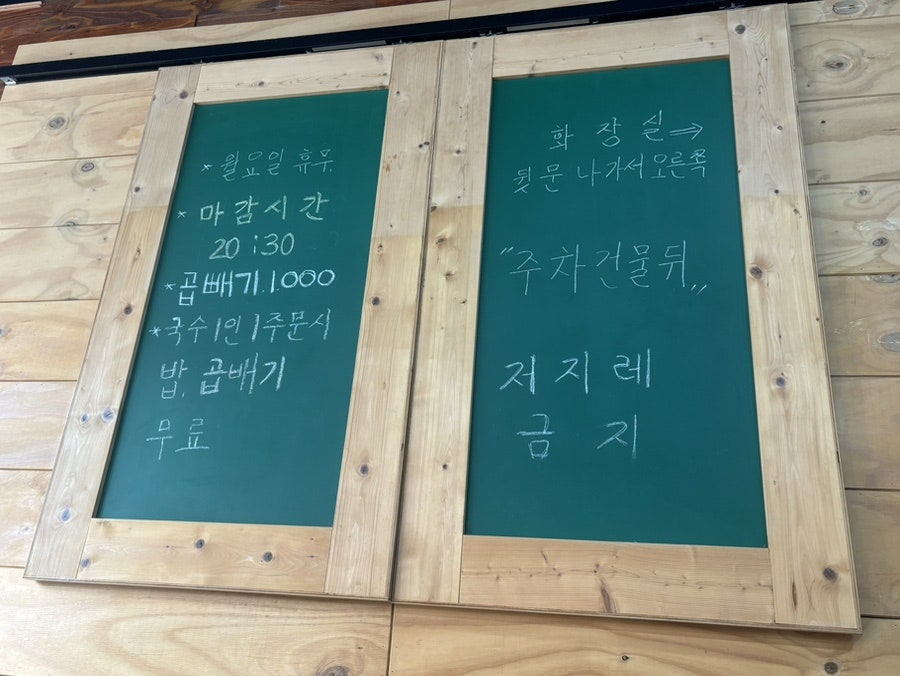 * 월요일 휴무.
* 마감시간
20:30
* 곱빼기 1.000
* 국수 1인 1주문시
밥, 곱배기
무료
화장실 ⇒
뒷문 나가서 오른쪽
"주차건물뒤"
저지레
금지